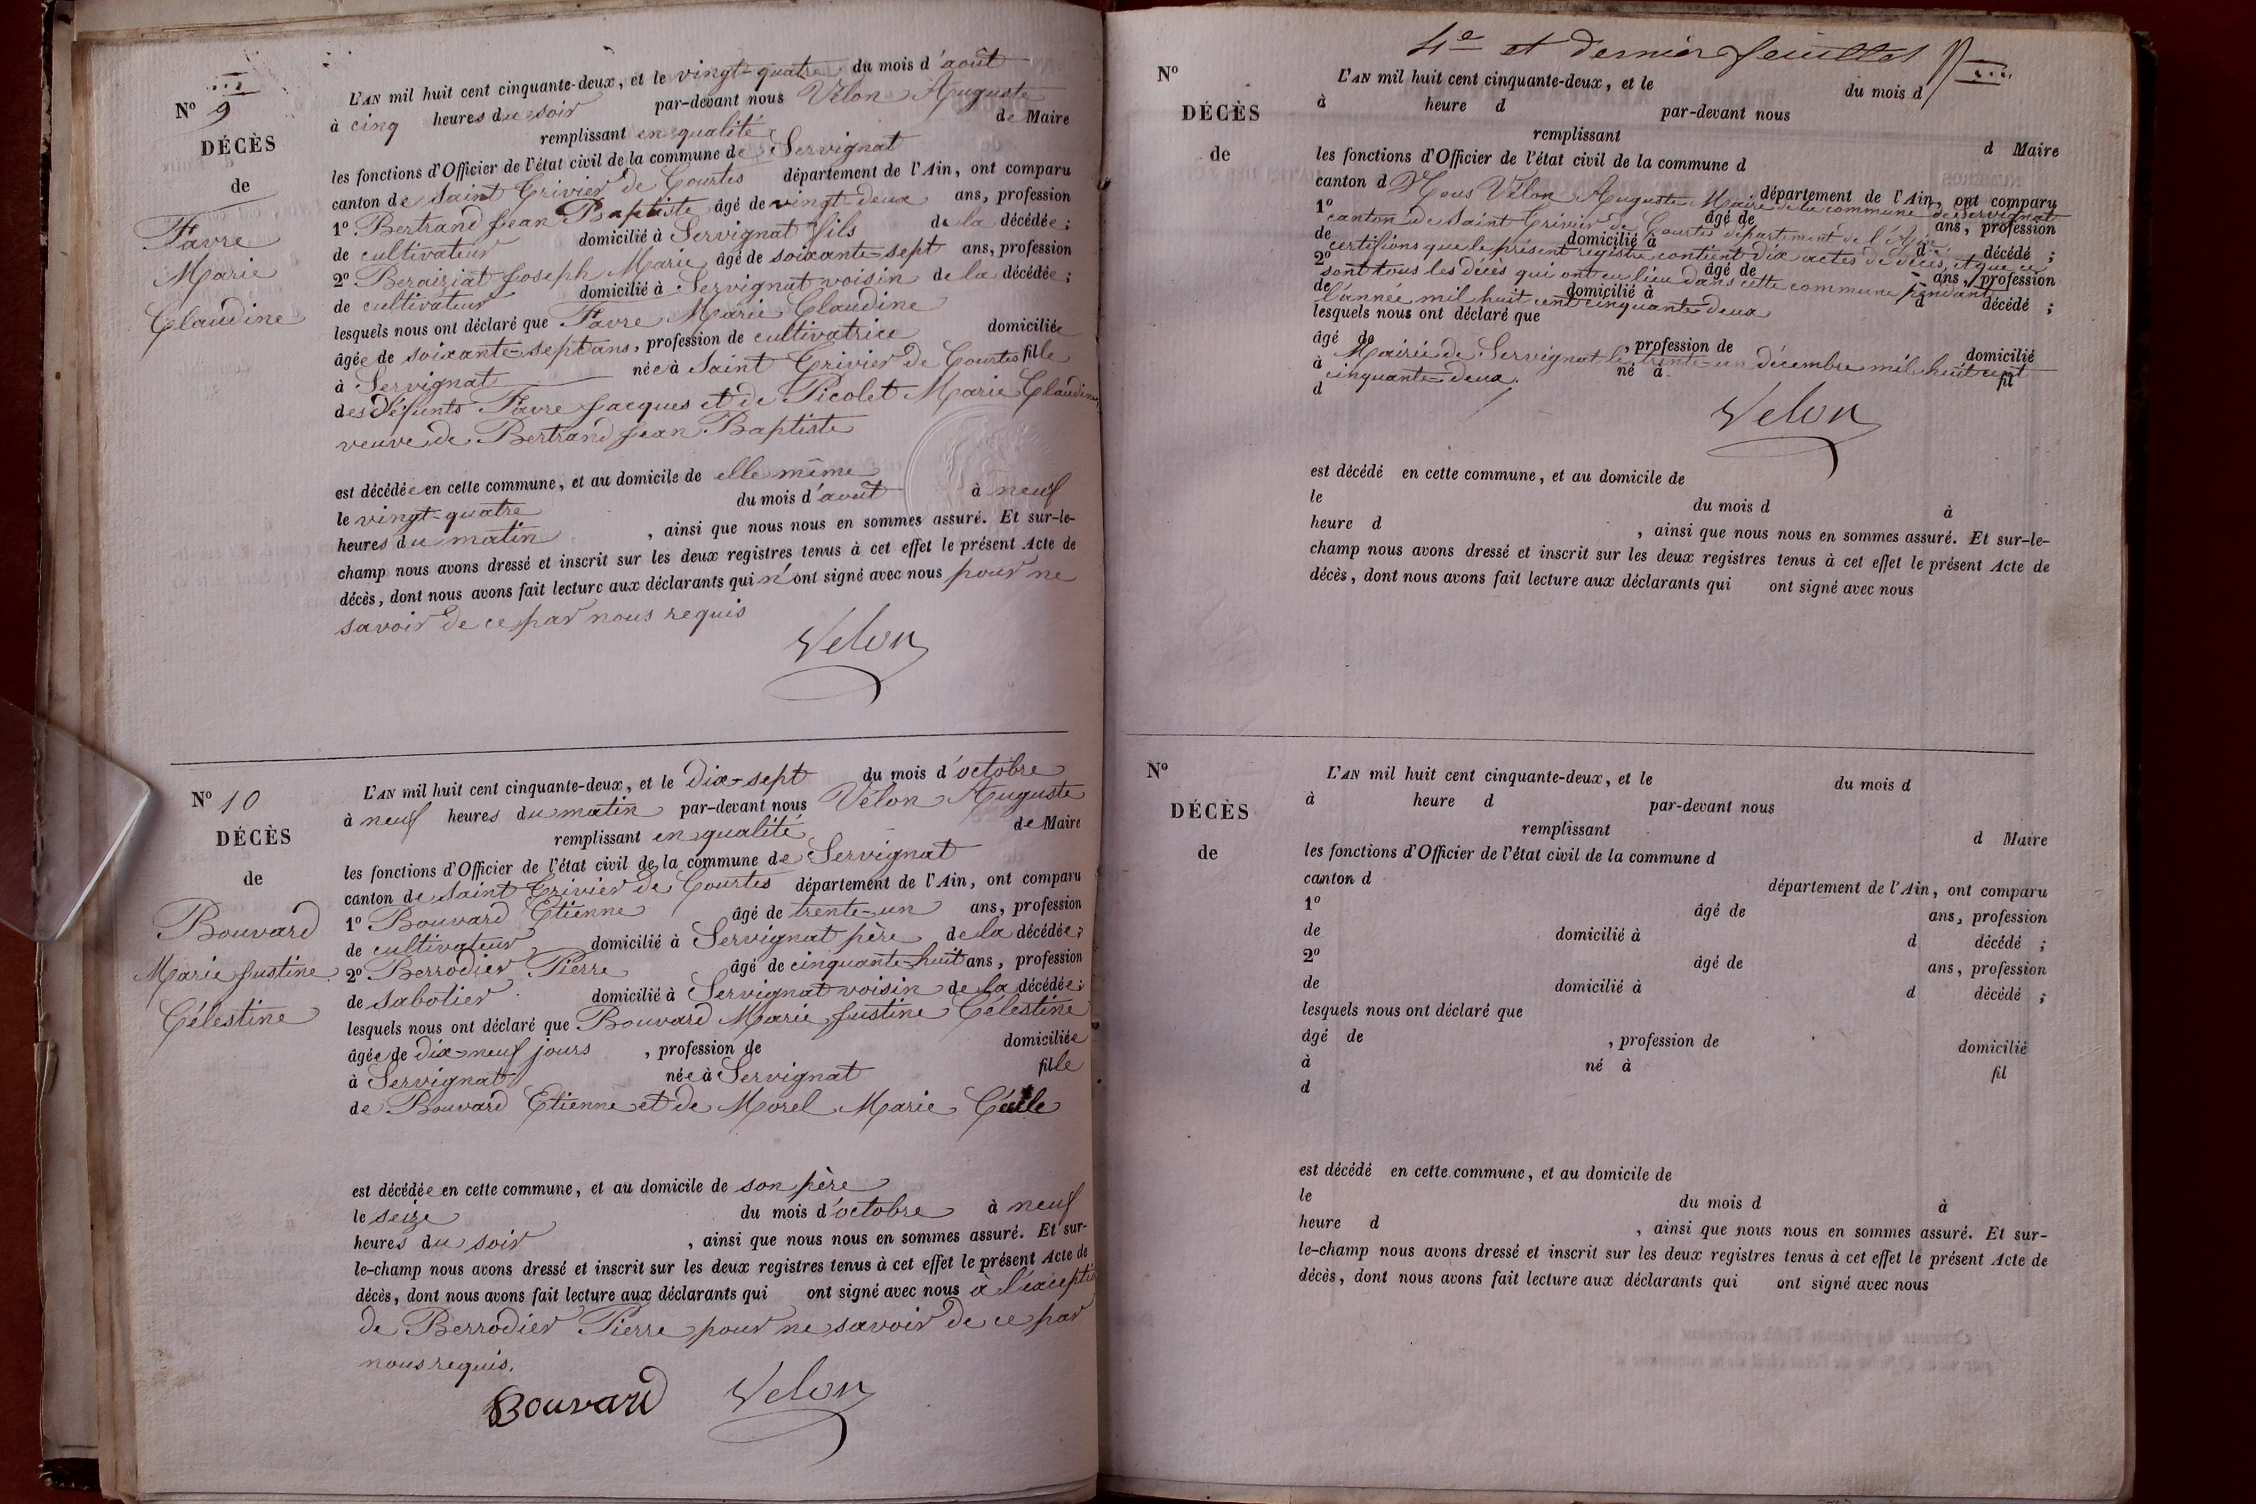 N° 9
DÉCÈS
de
Favre
Marie
Claudine
L'AN mil huit cent cinquante-deux, et le vingt-quatre du mois d'août
à cinq heures du soir par-devant nous Vélon Auguste
remplissant en qualité de Maire
les fonctions d'Officier de l'état civil de la commune de Servignat
canton de Saint Trivier de Courtes département de l'Ain, ont comparu
1° Bertrand Jean Baptiste âgé de vingt-deux ans, profession
de cultivateur domicilié à Servignat fils de la décédée;
2° Beraiziat Joseph Marie âgé de soixante-sept ans, profession
de cultivateur domicilié à Servignat voisin de la décédée;
lesquels nous ont déclaré que Favre Marie Claudine
âgée de soixante-sept ans, profession de cultivatrice domiciliée
à Servignat née à Saint Trivier de Courtes fille
des défunts Favre Jacques et de Picolet Marie Claudine
veuve de Bertrand Jean Baptiste
est décédée en cette commune, et au domicile de elle même
le vingt-quatre du mois d'août à neuf
heures du matin , ainsi que nous nous en sommes assuré. Et sur-le-
champ nous avons dressé et inscrit sur les deux registres tenus à cet effet le présent Acte de
décès, dont nous avons fait lecture aux déclarants qui n'ont signé avec nous pour ne
savoir de ce par nous requis
Velon
N° 10
DÉCÈS
de
Bouvard
Marie Justine
Célestine
L'AN mil huit cent cinquante-deux, et le dix-sept du mois d'octobre
à neuf heures du matin par-devant nous Vélon Auguste
remplissant en qualité de Maire
les fonctions d'Officier de l'état civil de la commune de Servignat
canton de Saint Trivier de Courtes département de l'Ain, ont comparu
1° Bouvard Etienne âgé de trente-un ans, profession
de cultivateur domicilié à Servignat père de la décédée;
2° Berrodier Pierre âgé de cinquante-huit ans, profession
de sabotier domicilié à Servignat voisin de la décédée;
lesquels nous ont déclaré que Bouvard Marie Justine Célestine
âgée de dix-neuf jours , profession de domiciliée
à Servignat née à Servignat fille
de Bouvard Etienne et de Morel Marie
est décédée en cette commune, et au domicile de son père
le seize du mois d'octobre à neuf
heures du soir , ainsi que nous nous en sommes assuré. Et sur-
le-champ nous avons dressé et inscrit sur les deux registres tenus à cet effet le présent Acte de
décès, dont nous avons fait lecture aux déclarants qui ont signé avec nous à l'exception
de Berrodier Pierre pour ne savoir de ce par
nous requis.
Bouvard Velon
4e et dernier feuillet
N°
DÉCÈS
de
L'AN mil huit cent cinquante-deux, et le du mois d
à heure d par-devant nous
remplissant d Maire
les fonctions d'Officier de l'état civil de la commune d
canton d département de l'Ain, ont comparu
Nous Vélon Auguste Maire de la commune de Servignat
1° âgé de ans, profession
canton de Saint Trivier de Courtes département de l'Ain,
de domicilié à d décédé ;
certifions que le présent registre contient dix actes de décès, et que ce
2° âgé de ans, profession
sont tous les décès qui ont eu lieu dans cette commune pendant
de domicilié à d décédé ;
l'année mil huit cent cinquante-deux
lesquels nous ont déclaré que
âgé de , profession de domicilié
Mairie de Servignat le trente-un décembre mil huit cent
à né à fil
cinquante-deux.
d
Velon
est décédé en cette commune, et au domicile de
le du mois d à
heure d , ainsi que nous nous en sommes assuré. Et sur-le-
champ nous avons dressé et inscrit sur les deux registres tenus à cet effet le présent Acte de
décès, dont nous avons fait lecture aux déclarants qui ont signé avec nous
N°
DÉCÈS
de
L'AN mil huit cent cinquante-deux, et le du mois d
à heure d par-devant nous
remplissant d Maire
les fonctions d'Officier de l'état civil de la commune d
canton d département de l'Ain, ont comparu
1° âgé de ans, profession
de domicilié à d décédé ;
2° âgé de ans, profession
de domicilié à d décédé ;
lesquels nous ont déclaré que
âgé de , profession de domicilié
à né à fil
d
est décédé en cette commune, et au domicile de
le du mois d à
heure d , ainsi que nous nous en sommes assuré. Et sur-
le-champ nous avons dressé et inscrit sur les deux registres tenus à cet effet le présent Acte de
décès, dont nous avons fait lecture aux déclarants qui ont signé avec nous